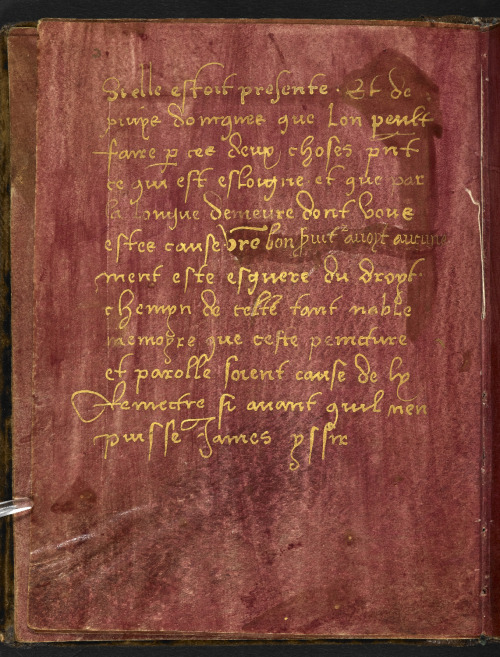 Si elle estoit presente. Et de
puiys doncques que lon peult
faire p ces deux choses pnt
ce qui est esloigne et que par
la longue demeure dont vous
estes cause vre bon huit avoyt aucune
ment este esgueré du droyt
chemyn de celle tant noble
memoyre que ceste peincture
et parolle soient cause de ly
Remectre si avant quil nen
puisse James yssir